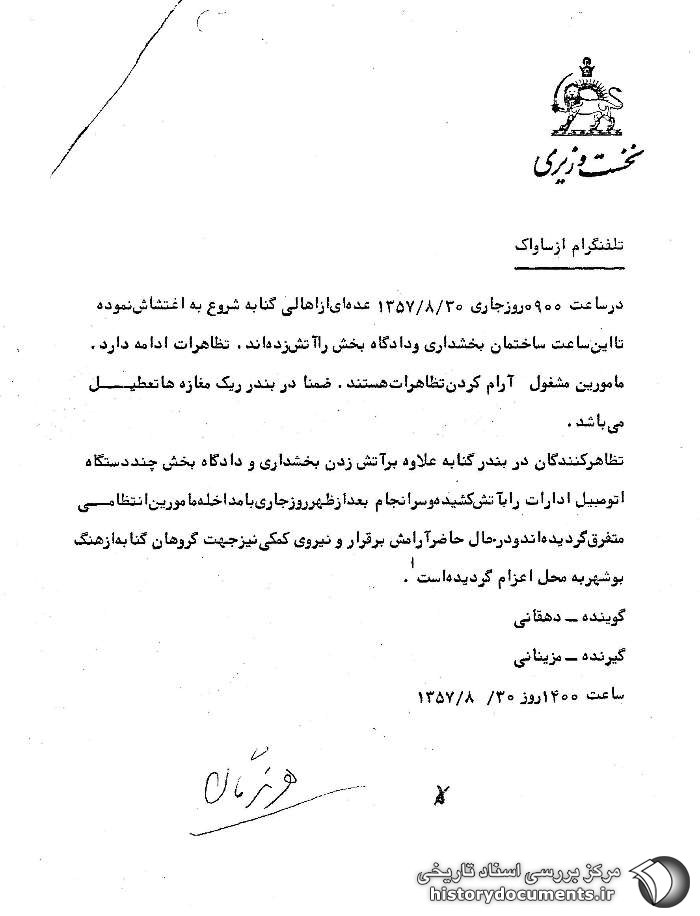 نخست وزیری
تلفنگرام از ساواک
در ساعت ۰۹۰۰ روز جاری ۱۳۵۷/۸/۳۰ عده‌ای از اهالی گنابه شروع به اغتشاش نموده
تا این ساعت ساختمان بخشداری و دادگاه بخش را آتش زده‌اند . تظاهرات ادامه دارد .
مامورین مشغول آرام کردن تظاهرات هستند . ضمنا در بندر ریک مغازه ها تعطیل
می باشد .
تظاهرکنندگان در بندر گنابه علاوه بر آتش زدن بخشداری و دادگاه بخش چند دستگاه
اتومبیل ادارات را بآتش کشیده و سرانجام بعد از ظهر روز جاری با مداخله مامورین انتظامی
متفرق گردیده اند و در حال حاضر آرامش برقرار و نیروی کمکی نیز جهت گروهان گنابه از هنگ
بوشهر به محل اعزام گردیده است .
گوینده ــ دهقانی
گیرنده ــ مزینانی
ساعت ۱۴۰۰ روز ۳۰/ ۱۳۵۷/۸
مرکز بررسی اسناد تاریخی
historydocuments.ir